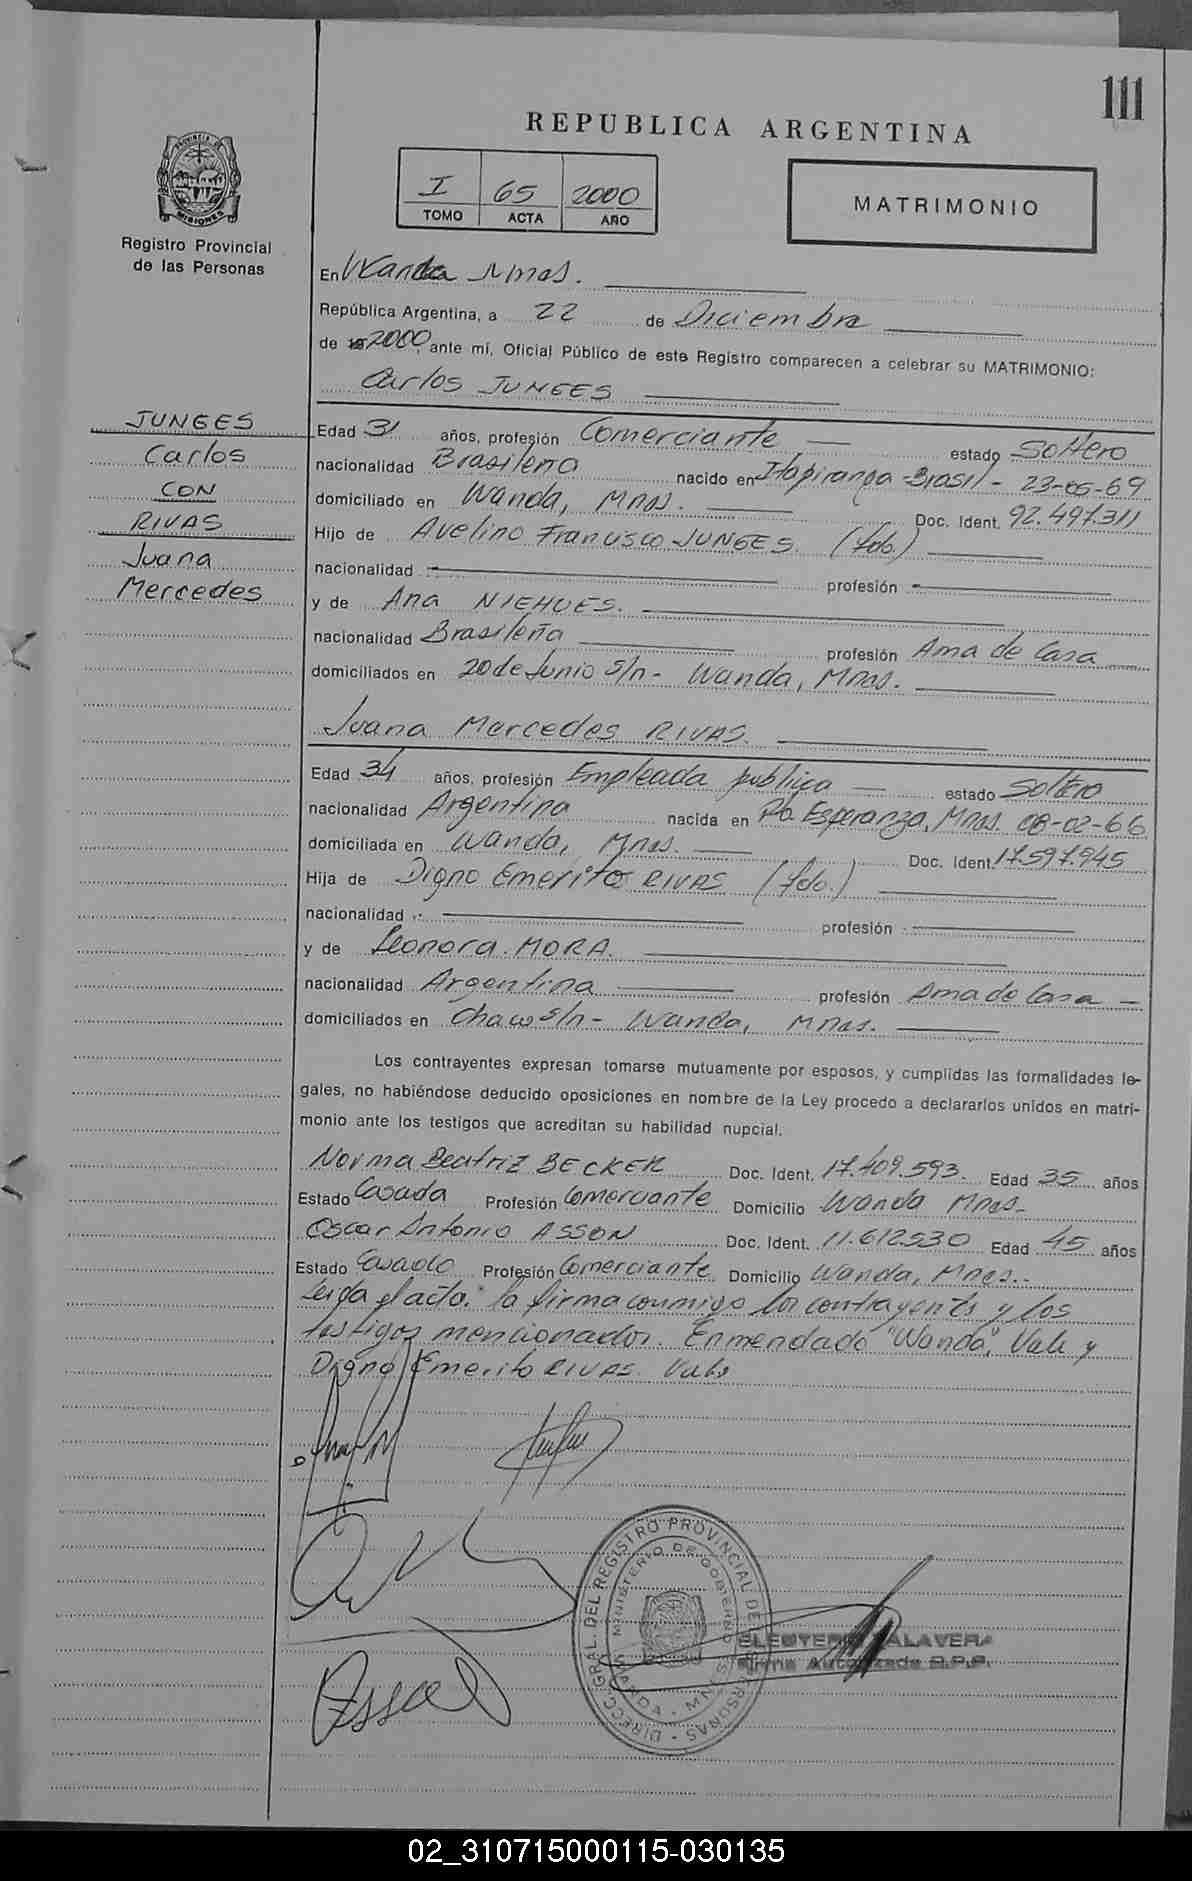 111
REPUBLICA ARGENTINA
PROVINCIA DE
MISIONES
Registro Provincial
de las Personas
I 65 2000
TOMO ACTA AÑO
MATRIMONIO
En Wanda Mnes.
República Argentina, a 22 de Diciembre
de 2000, ante mí, Oficial Público de este Registro comparecen a celebrar su MATRIMONIO:
Carlos JUNGES
JUNGES
Carlos
CON
RIVAS
Juana
Mercedes
Edad 31 años, profesión Comerciante estado Soltero
nacionalidad Brasileña nacido en Itapiranga-Brasil- 23-05-69
domiciliado en Wanda, Mnes. Doc. Ident. 92.497.311
Hijo de Avelino Francisco JUNGES (fdo.)
nacionalidad profesión
y de Ana NIEHUES.
nacionalidad Brasileña profesión Ama de Casa
domiciliados en 20 de Junio S/n- Wanda, Mnes.
Juana Mercedes RIVAS.
Edad 34 años, profesión Empleada publica estado Soltera
nacionalidad Argentina nacida en Pto. Esperanza, Mnes. 08-02-66
domiciliada en Wanda, Mnes. Doc. Ident. 17.597.945
Hija de Digno Emerito RIVAS (fdo.)
nacionalidad profesión
y de Leonora MORA.
nacionalidad Argentina profesión Ama de Casa
domiciliados en Chaco S/n- Wanda, Mnes.
Los contrayentes expresan tomarse mutuamente por esposos, y cumplidas las formalidades le-
gales, no habiéndose deducido oposiciones en nombre de la Ley procedo a declararlos unidos en matri-
monio ante los testigos que acreditan su habilidad nupcial.
Norma Beatriz BECKER Doc. Ident. 17.409.593. Edad 35 años
Estado Casada Profesión Comerciante Domicilio Wanda Mnes-
Oscar Antonio ASSON Doc. Ident. 11.612.530 Edad 45 años
Estado Casado Profesión Comerciante Domicilio Wanda, Mnes.-
Leida el acta. la firma conmigo los contrayents y los
testigos mencionados. Enmendado "Wanda", Vale y
Digno Emerito RIVAS. Vale
DIRECC. GRAL. DEL REGISTRO PROVINCIAL DE LAS PERSONAS
MINISTERIO DE GOBIERNO
WANDA - MNES
ELEUTERIO TALAVERA
Firma Autorizada R.P.P.
02_310715000115-030135